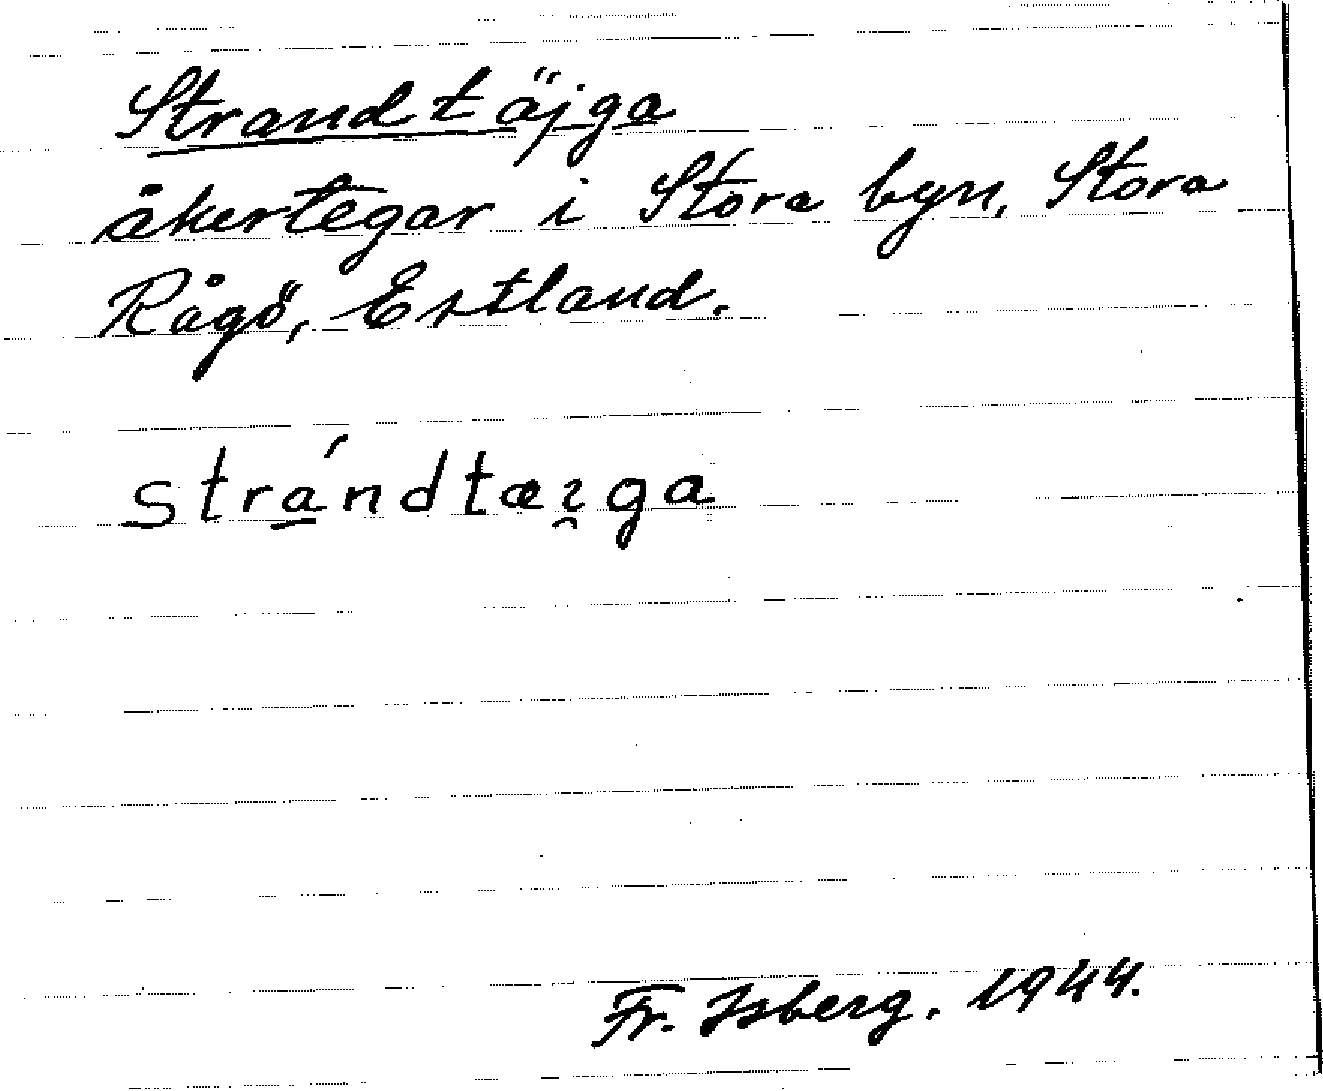 Strandtäjga
åkertegar i Stora byn, Stora
Rågö, Estland.
strá̱ndtæi̯ga
Fr. Isberg. 1944.